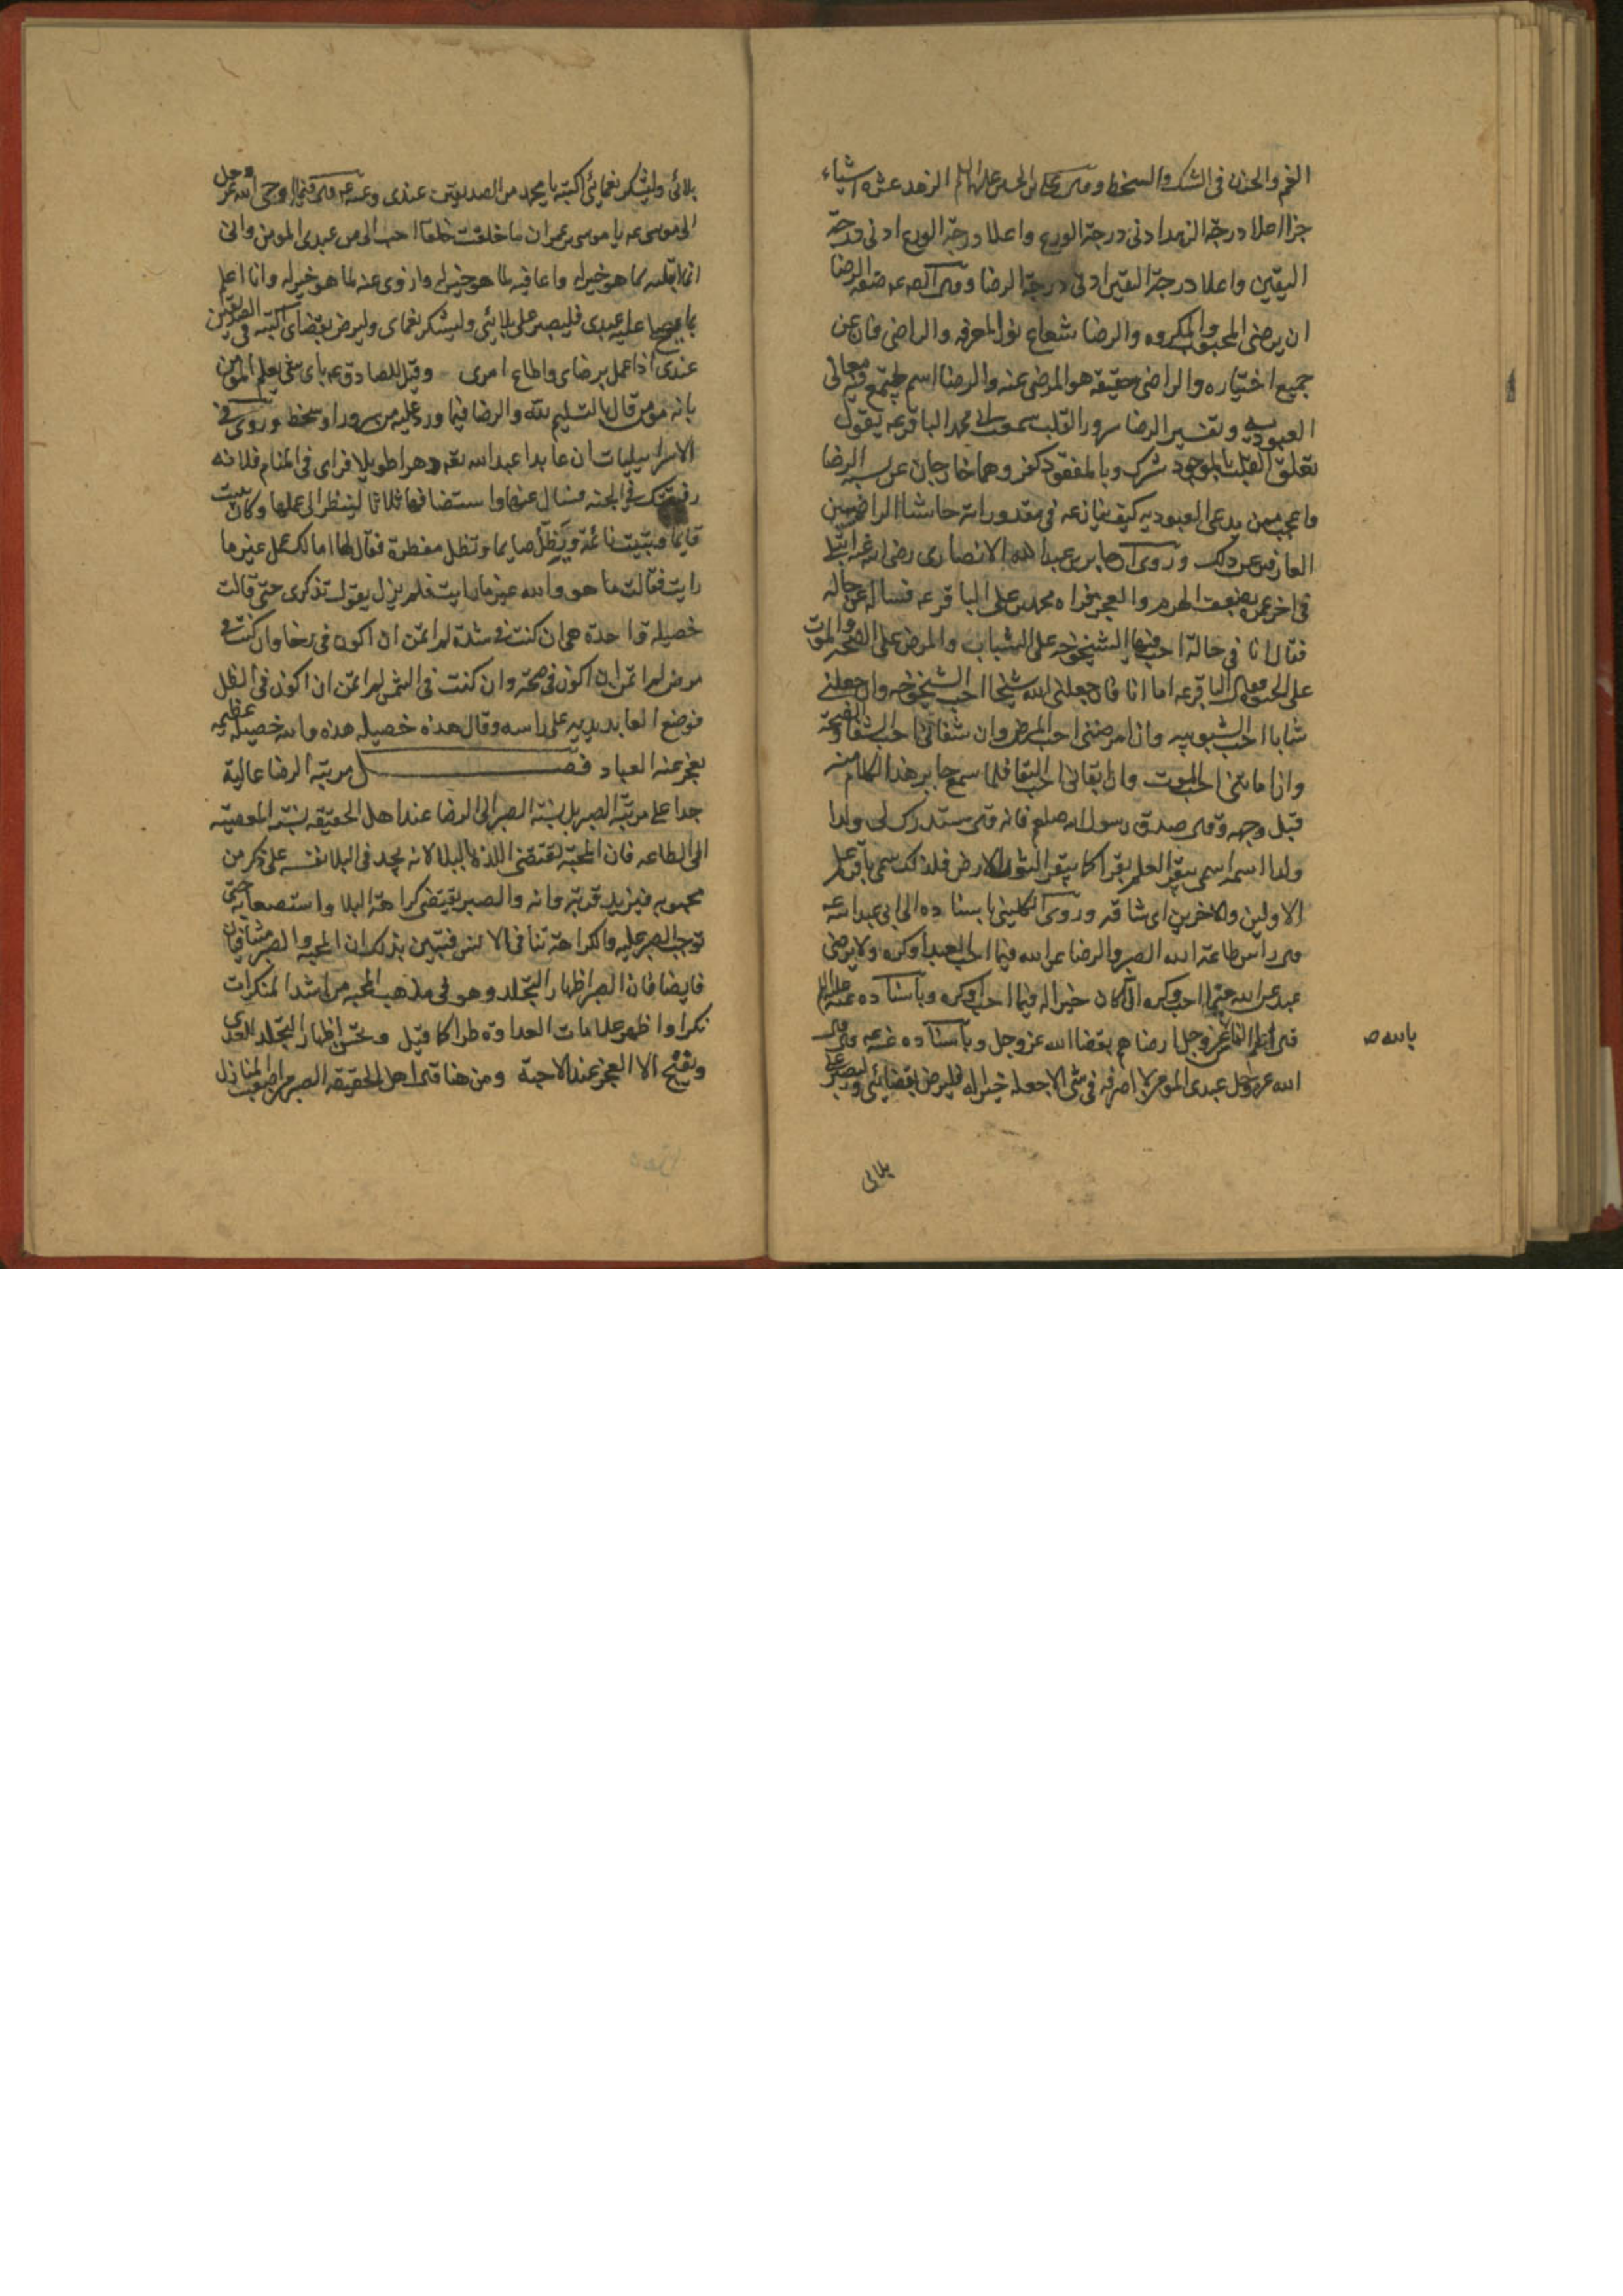 الغم والحزن فى الشك والسخط وقال على بن الحسين عليهما السلام الزهد عشرة اشياء
جزا اعلا درجة الزهد ادنى درجة الورع واعلا درجة الورع ادنى درجة
اليقين واعلا درجة اليقين ادنى درجة الرضا وقال الصه عه صفة الرضا
ان يرضى المحبوب والمكروه والرضا شعاع نور المعرفه والراضى فان عن
جميع اختياره والراضى حقيقه هو المرضى عنه والرضا اسم يجتمع فيه معانى
العبوديه وتفسير الرضا سرور القلب سمعت ابى محمد الباقر عه يقول
تعلق القلب بالموجود شرك وبالمفقود كفر وهما خارجان عن سنه الرضا
واعجب ممن يدعى العبوديه كيف ينازعه فى مقدوراته حاشا الراضيين
العارفين عن ذلك وروى ان جابر بن عبد الله الانصارى رضى الله عنه ابتلى
فى اخر عمره بضعف الهرم والعجز فزاره محمد بن على الباقر عه فساله عن حاله
فقال انا فى حالة احب فيها الشيخوخه على الشباب والمرض على الصحه والموت
على الحيوة فقال الباقر عه اما انا فان جعلنى الله شيخا احب الشيخوخه وان جعلنى
شابا احب الشبوبيه وان امرضنى احب المرض وان شفانى احب الشفا والصحة
وان اماتنى احب الموت وان ابقانى احب البقا فلما سمع جابر هذا الكلام منه
قبل وجهه وقال صدق رسول الله صلعم فانه قال ستدرك لى ولدا
ولدا اسمه اسمى يبقر العلم بقرا كما يبقر الثور الارض فلذلك سمى باقر علم
الاولين والاخرين اى شاقه وروى الكلينى باسناده الى ابى عبد الله عه
قال راس طاعة الله الصبر والرضا عن الله فيما احب العبد او كره ولا يرضى
عبد عن الله فيما احب وكره الا كان خيرا له فيما احب او كره وباسناده عنه عليه السلام
قال اعلم الناس عز وجل ارضاهم بقضا الله عز وجل وباسناده عنه عه قال قال
بالله صح
الله عز وجل عبدى المومن لا اصرفه فى شى الا جعلته خيرا له فليرض بقضائى وليصبر على
بلائى
بلائى وليشكر نعمائى اكتبه يا محمد من الصديقين عندى وعنه عه قال فيما اوحى الله عز وجل
الى موسى عه يا موسى بن عمران ما خلقت خلقا احب الى من عبدى المومن وانى
انما ابتليه لما هو خير له واعافيه لما هو خير له وازوى عنه لما هو خير له وانا اعلم
بما يصلح عليه عبدى فليصبر على بلائى وليشكر نعماى وليرض بقضاى اكتبه فى الصديقين
عندى اذا عمل برضاى واطاع امرى وقيل للصادق عه باى شى يعلم المومن
بانه مومن قال بالتسليم لله والرضا فيما ورد عليه من سرور او سخط وروى فى
الاسراييليات ان عابدا عبد الله تعه دهرا طويلا فراى فى المنام فلانه
رفيقتك فى الجنه فسال عنها واستضافها ثلاثا لينظر الى عملها وكان يبيت
قايما وتبيت نائمة ويظل صايما وتظل مفطرة فقال لها اما لك عمل غير ما
رايت فقالت ما هو والله غير ما رايت فلم يزل يقول تذكرى حتى قالت
خصيلة واحدة هى ان كنت فى شدة لم اتمن ان اكون فى رخا وان كنت فى
مرض لم اتمن ان اكون فى صحة وان كنت فى الشمس لم اتمن ان اكون فى الظل
فوضع العابد يديه على راسه وقال هذه خصيله هذه والله خصيله عظيمه
يعجز عنها العباد فصل مرتبة الرضا عالية
جدا على مرتبة الصبر بل نسبة الصبر الى الرضا عند اهل الحقيقه نسبة المعصيه
الى الطاعه فان المحبة تقتضى اللذة بالبلا لانه يجد فى البلا نفسه على ذكر من
محبوبه فيزيد قربة وانه والصبر يقتضى كراهة البلا واستصعابه حتى
توجب الصبر عليه والكراهة تنافى الانس فتبين بذلك ان المحبه والصبر متنافيان
فايضا فان الصبر اظهار التجلد وهو فى مذهب المحبه من اشد المنكرات
نكرا واظهر علامات العداوة طرا كما قيل ويحسن اظهار التجلد للعدى
ويقبح الا العجز عند الاحبة ومن هنا قال اهل الحقيقه الصبر من اصعب المنازل